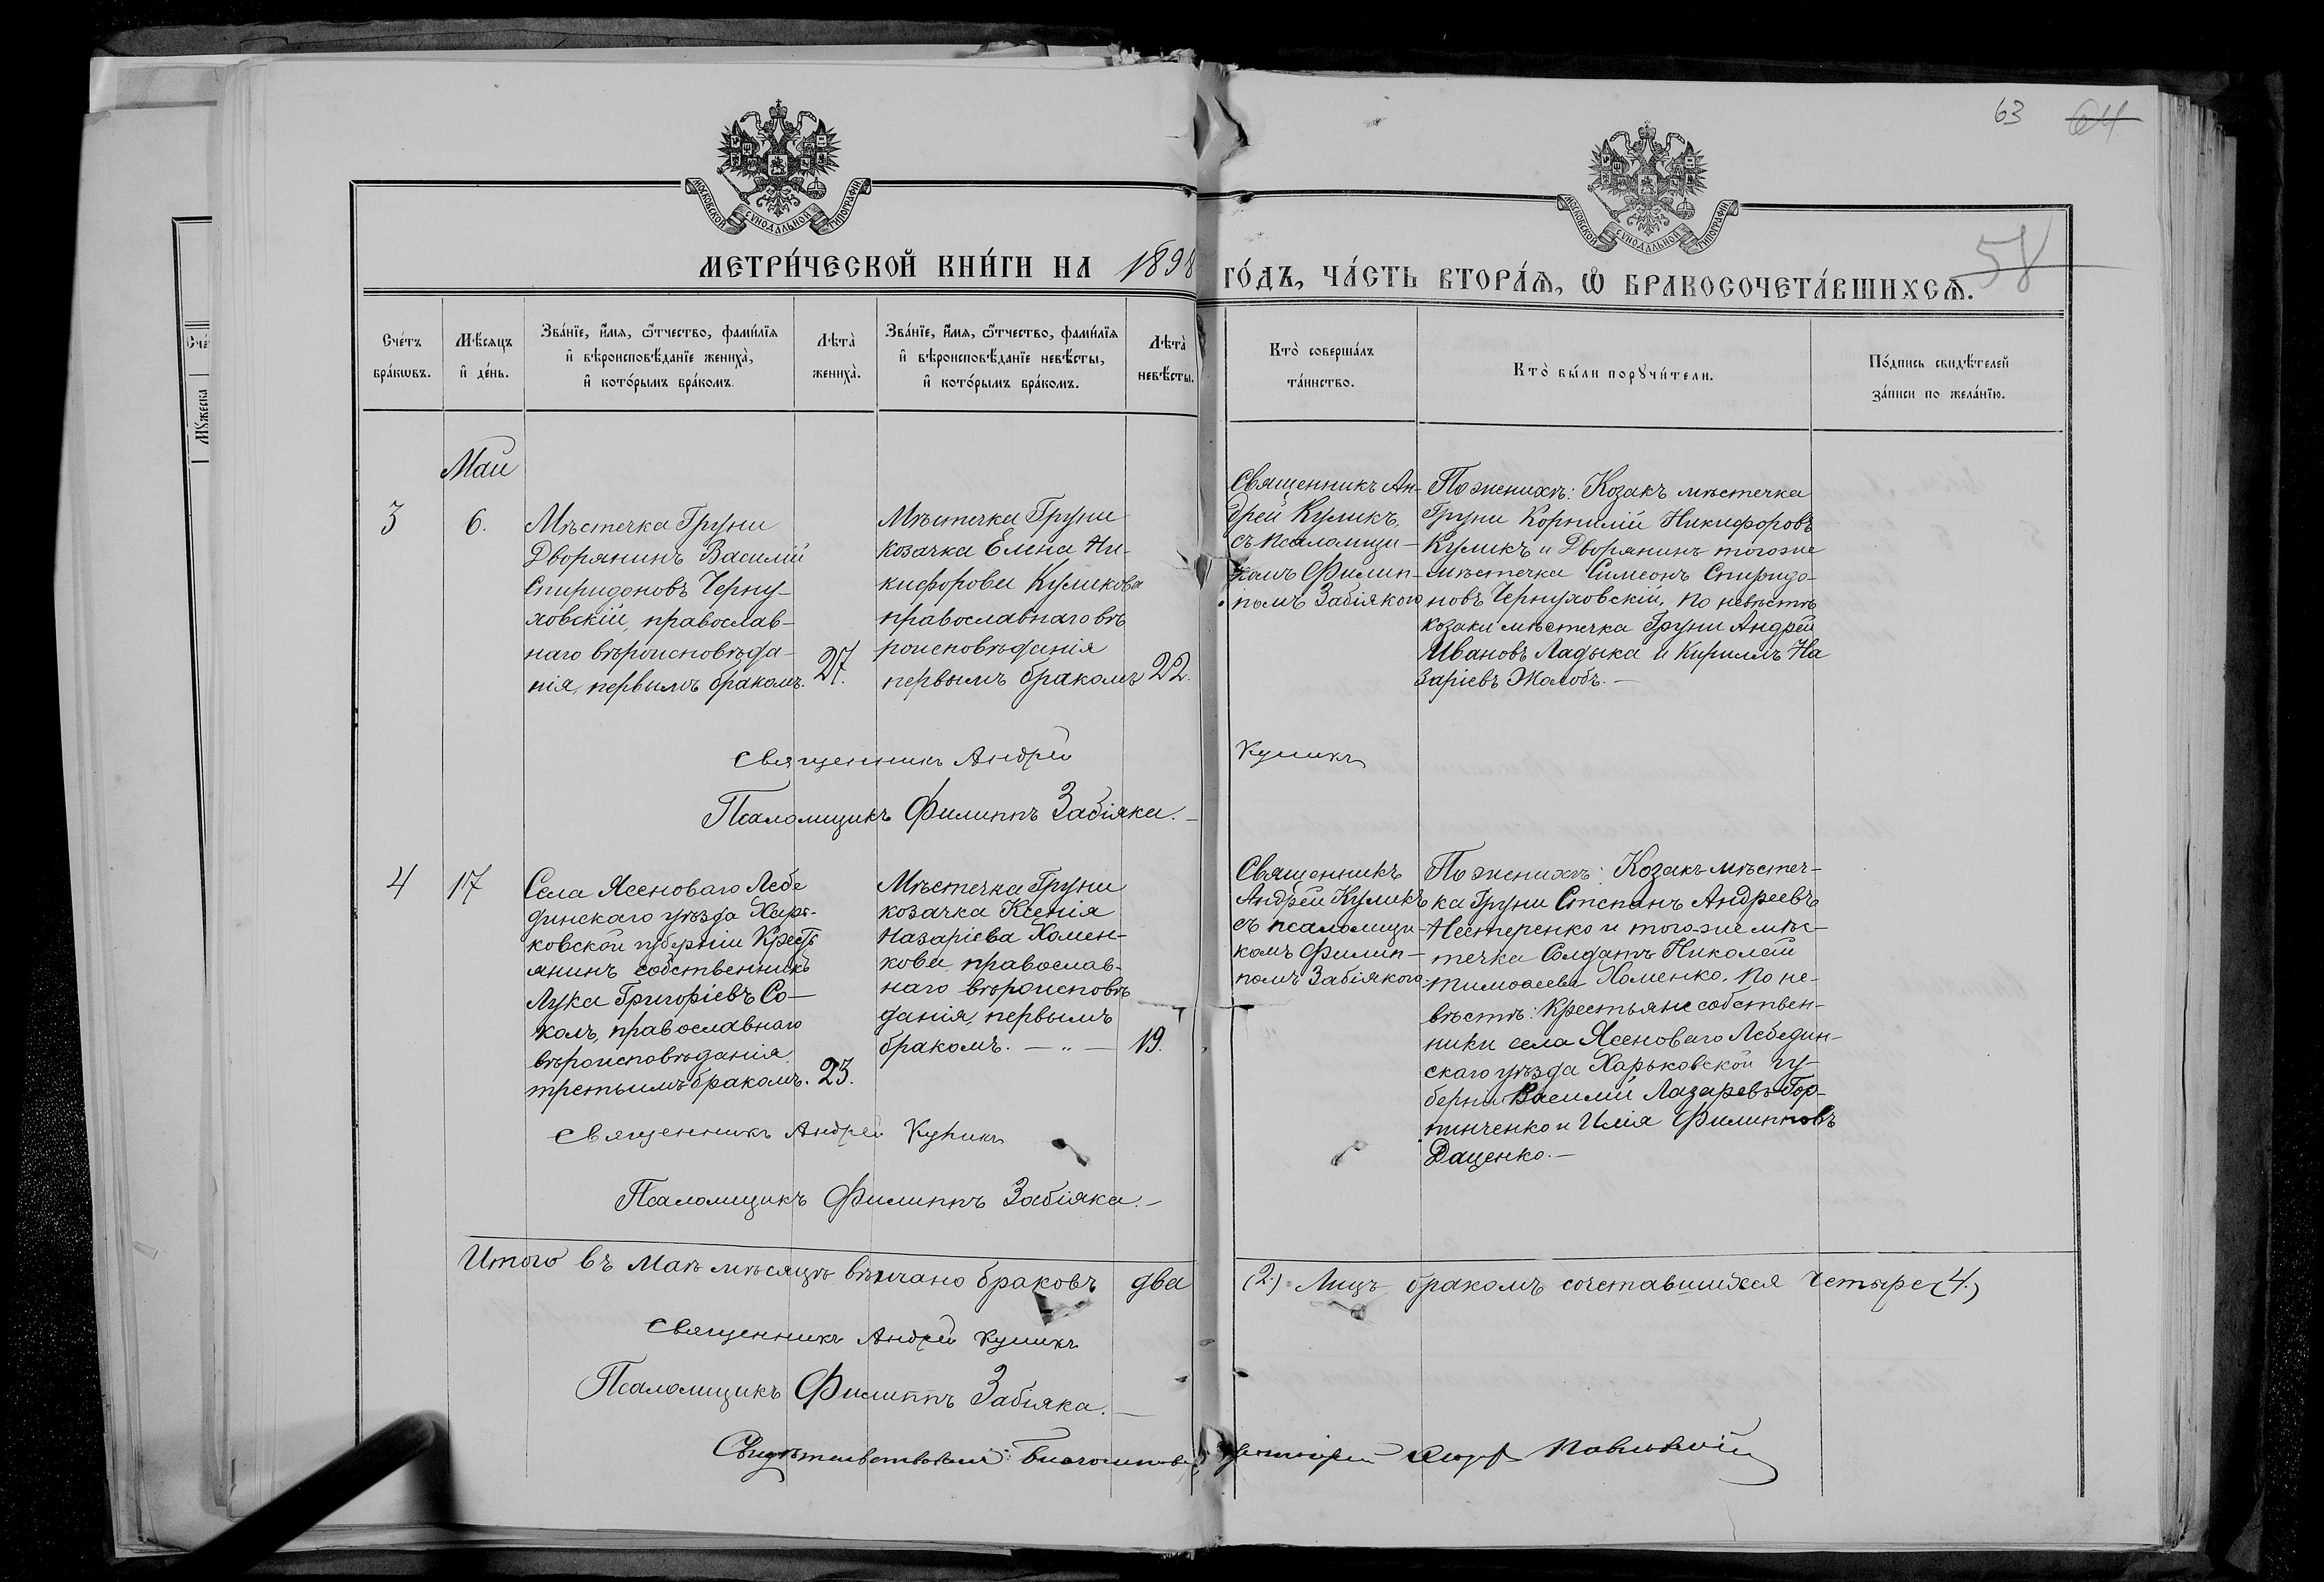 63 64
МОСКОВСКОЙ СѴНОДАЛЬНОЙ ТИПОГРАФІИ
МОСКОВСКОЙ СѴНОДАЛЬНОЙ ТИПОГРАФІИ
58
МЕТРИ́ЧЕСКОЙ КНИ́ГИ НА 1898 ГО́ДЪ, ЧА́СТЬ ВТОРА́Ѧ, Ѡ҆ БРАКОСОЧЕТА́ВШИХСѦ.
Сче́тъ
бра́кѡвъ.
Мѣ́сяцъ
и҆ де́нь.
Зва́нїе, и҆́мя, ѻ҆́тчество, фами́лїя
и҆ вѣроисповѣ́данїе жениха̀,
и҆ кото́рымъ бра́комъ.
Лѣта̀
жениха̀.
Зва́нїе, и҆́мя, ѻ҆́тчество, фами́лїя
и҆ вѣроисповѣ́данїе невѣ́сты,
и҆ кото́рымъ бра́комъ.
Лѣта̀
невѣ́сты.
Кто̀ соверша́лъ
та́инство.
Кто̀ бы́ли порꙋчи́тели.
По́дпись свидѣ́телей
за́писи по жела́нїю.
Сче
Мꙋжеска
Маи
3
6.
Мѣстечка Груни
Дворянинъ Василій
Спиридоновъ Черну-
ховскій, православ-
наго вѣроисповѣда-
нія, первымъ бракомъ.
27.
Мѣстечка Груни
козачка Елена Ни-
кифорова Куликова
православнаго вѣ
роисповѣданія
первымъ бракомъ
22.
Священникъ Ан-
дрей Куликъ,
съ псаломщи-
комъ Филип-
помъ Забіякою
По женихѣ: Козакъ мѣстечка
Груни Корнилій Никифоровъ
Куликъ и Дворянинъ тогоже
мѣстечка Симеонъ Спиридо-
новъ Чернуховскій. По невѣстѣ
козаки мѣстечка Груни Андрей
Ивановъ Ладыка и Кириллъ На
заріевъ Жолобъ.—
священникъ Андрей Куликъ
Псаломщикъ Филиппъ Забіяка.—
4
17
Села Ясеноваго Лебе
динскаго уѣзда Харь-
ковской губерніи Крестъ
янинъ собственникъ
Лука Григоріевъ Со-
колъ, православнаго
вѣроисповѣданія,
третьимъ бракомъ.
23.
Мѣстечка Груни
козачка Ксенія
Назаріева Хомен-
кова православ-
наго вѣроисповѣ
данія, первымъ
бракомъ. — „ —
19.
Священникъ
Андрей Куликъ
съ псаломщи-
комъ Филип-
помъ Забіякою
По женихѣ: Козакъ мѣстеч-
ка Груни Степанъ Андреевъ
Нестеренко и тогоже мѣс-
течка Солдатъ Николай
тимоѳеевъ Хоменко. По не-
вѣстѣ: Крестьяне собствен-
ники села Ясеноваго Лебедин-
скаго уѣзда Харьковской гу-
берніи Василій Лазаревъ Гор-
пинченко и Илія Филипповъ
Даценко.—
священникъ Андрей Куликъ
Псаломщикъ Филиппъ Забіяка.—
Итого въ Маѣ мѣсяцѣ вѣнчано браковъ два (2.) Лицъ бракомъ сочетавшихся четыре (4.)
священникъ Андрей Куликъ
Псаломщикъ Филиппъ Забіяка.—
Свидѣтельствовалъ: Благочинный